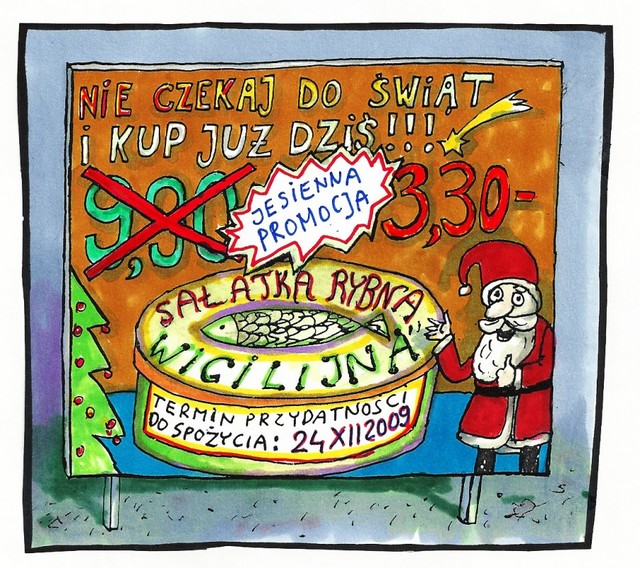 NiE CZEKAJ DO ŚWIĄT
i KUP JUŻ DZIŚ!!!
9,90
JESIENNA
PROMOCJA
3,30-
SAŁATKA RYBNA
WIGILIJNA
TERMIN PRZYDATNOŚCI
DO SPOŻYCIA: 24 XII 2009